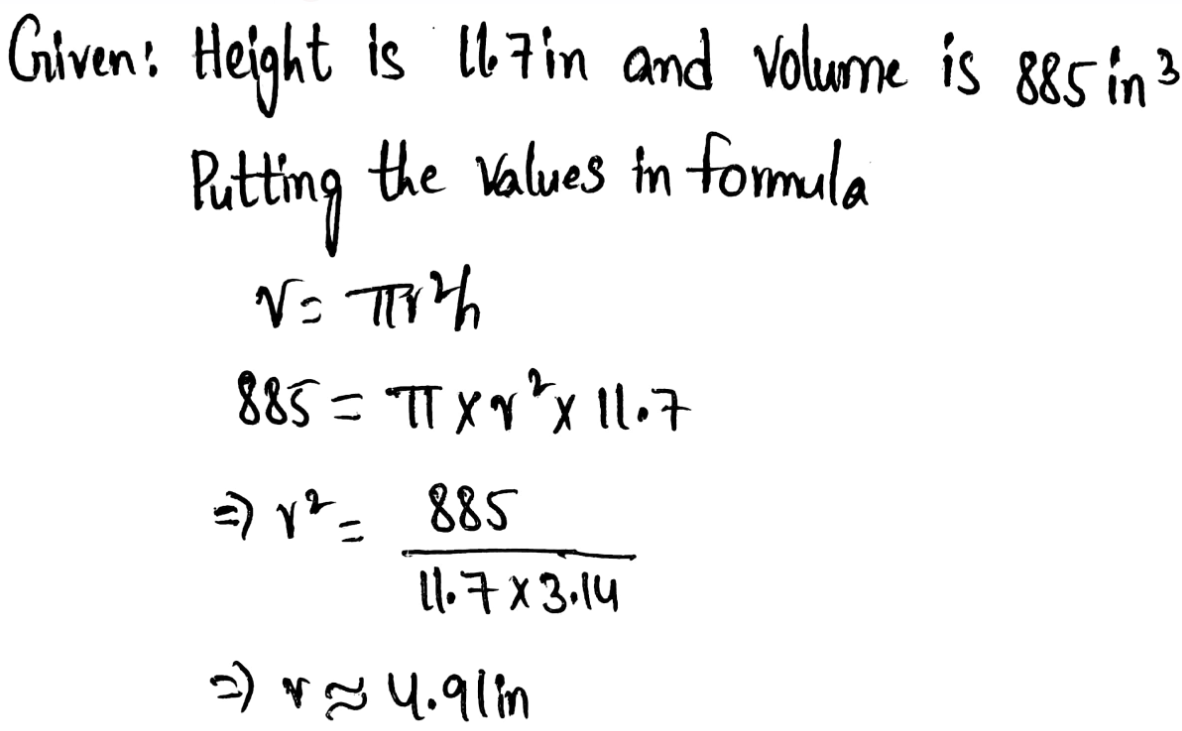 Given: Height is 11.7in and Volume is 885in³
Putting the Values in formula
V= πr²h
885 = π x r² x 11.7
⇒ r² = 885
11.7 x 3.14
⇒ r ≈ 4.91in